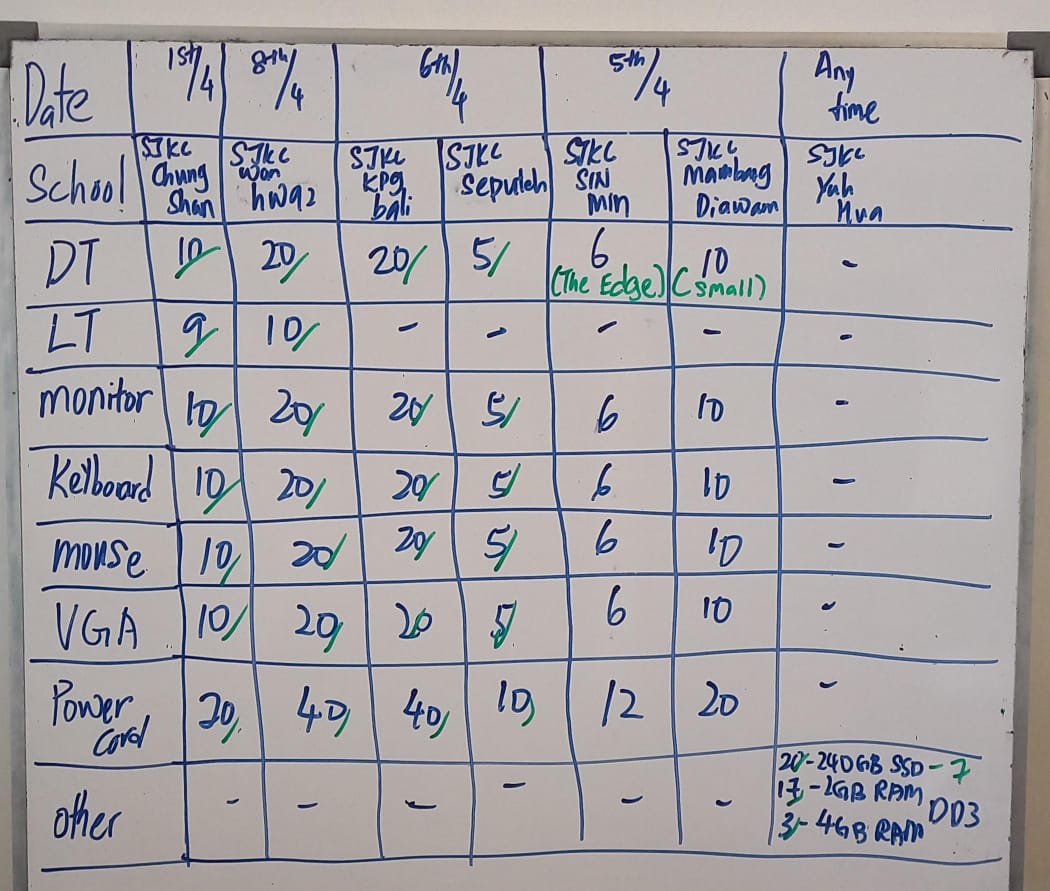 Date 1st/4 8th/4 6th/4 5th/4 Any time
School SJKC Chung Shan SJKC Wan hwaz SJKC KPG bali SJKC Seputeh SJKC SIN MIN SJKC Mambang Diawam SJKC Yuh Hua
DT 10 20 20 5 6 (The Edge) 10 (small) -
LT 9 10 - - - - -
monitor 10 20 20 5 6 10 -
Keyboard 10 20 20 5 6 10 -
mouse 10 20 20 5 6 10 -
VGA 10 20 20 5 6 10 -
Power Cord 20 40 40 10 12 20 -
other - - - - - - 20-240GB SSD - 7
17-2GB RAM DD3
3-4GB RAM